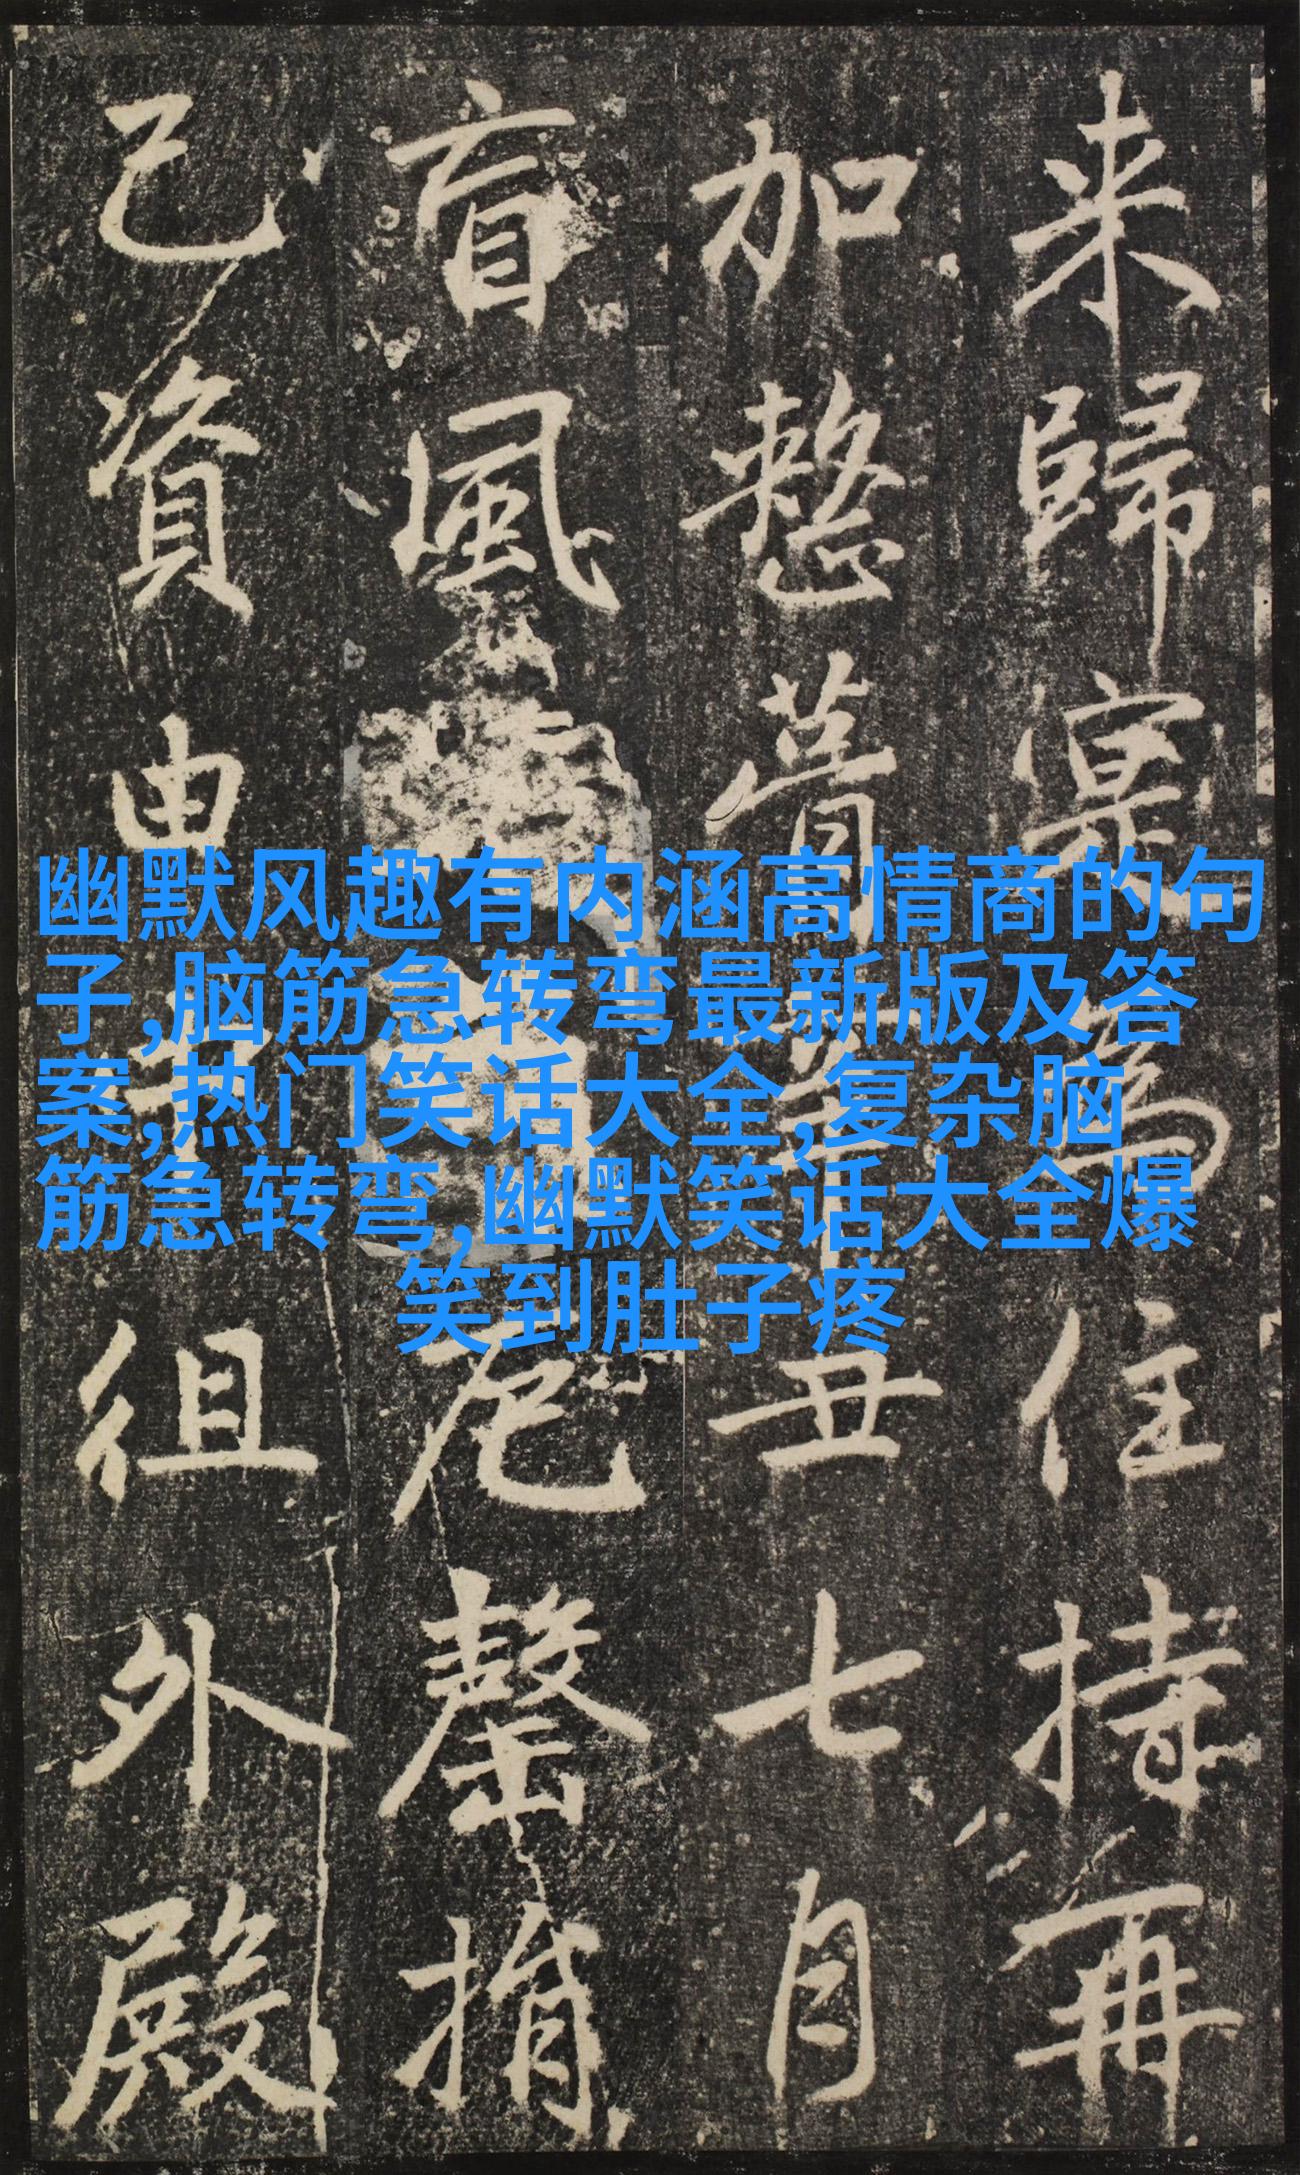 来歸寔爲住持再
加整葺丑七月
盲風尼罄捐
己資由徂外殿
幽默风趣有内涵高情商的句
子,脑筋急转弯最新版及答
案,热门笑话大全,复杂脑
筋急转弯,幽默笑话大全爆
笑到肚子疼